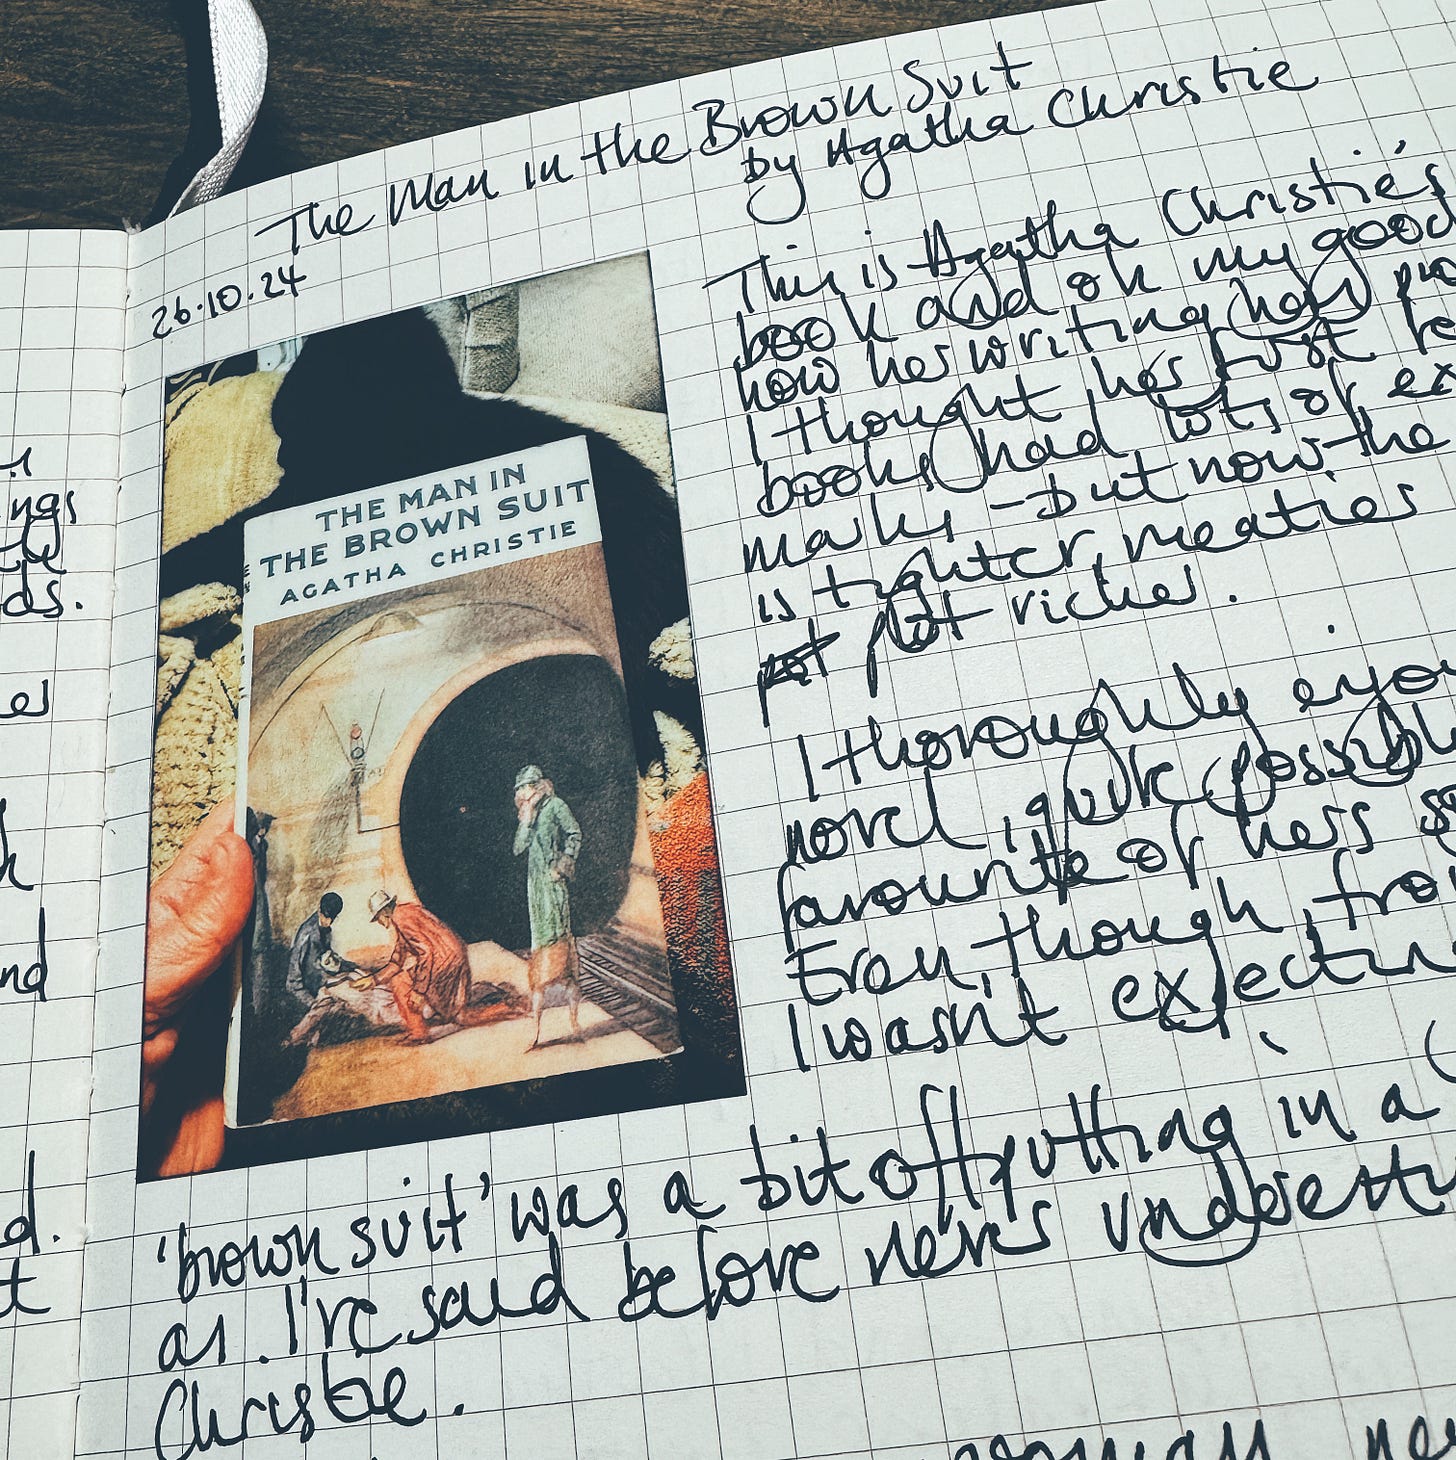 The Man in the Brown Suit
by Agatha Christie
26.10.24
THE MAN IN
THE BROWN SUIT
AGATHA CHRISTIE
This is Agatha Christie's
book and oh my good
how her writing has
I thought her first
books had lots of ex
marks - but now the
is tighter, meatier
plot richer.
I thoroughly enjo
novel, quite possibl
favourite of hers
Even though, fro
I wasn't expectin
'brown suit' was a bit offputting in a
as I've said before never
Christie.
ings
ds.
nd
d.
woman